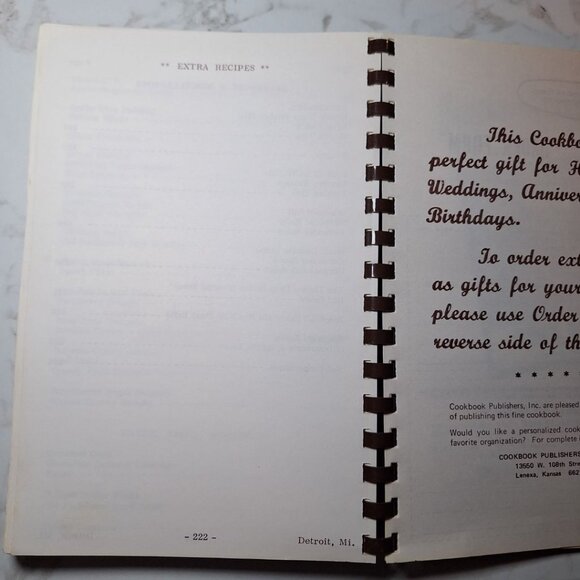 ** EXTRA RECIPES **
- 222 -
Detroit, Mi.
This Cookbo
perfect gift for H
Weddings, Anniver
Birthdays.
To order ext
as gifts for your
please use Order
reverse side of th
* * * *
Cookbook Publishers, Inc. are pleased
of publishing this fine cookbook.
Would you like a personalized cook
favorite organization? For complete
COOKBOOK PUBLISHERS
13550 W. 108th Stre
Lenexa, Kansas 662